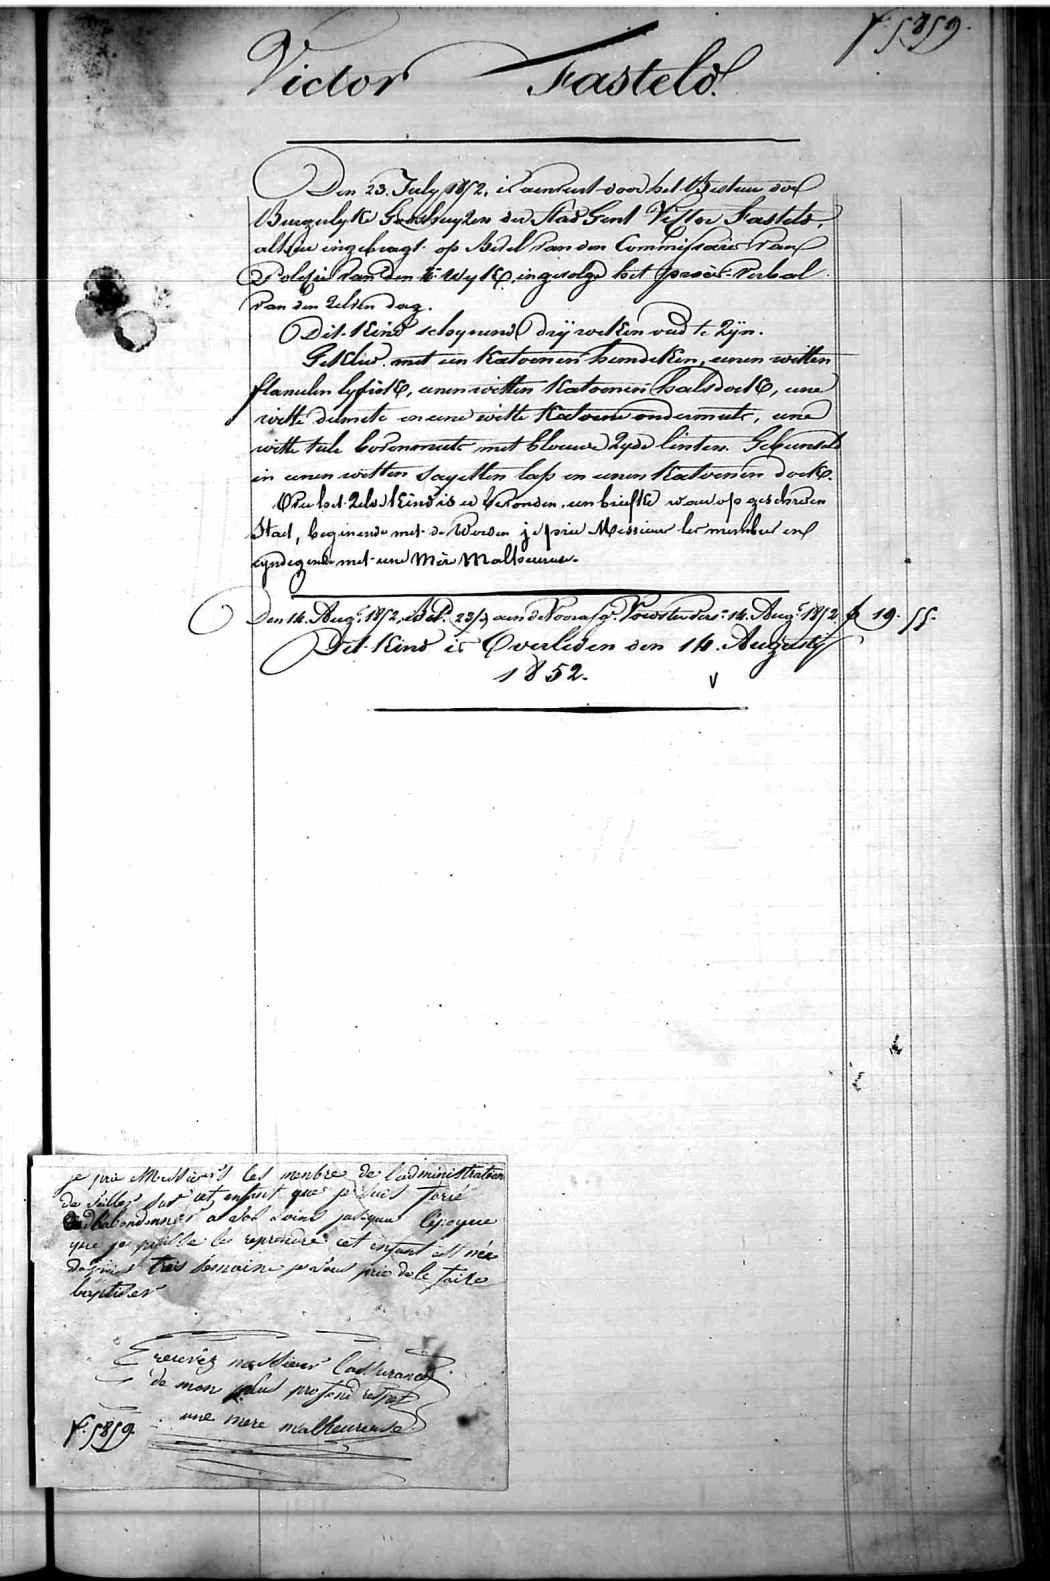 f. 5859.
Victor Fasteld.
Den 23. July 1852, is aenveert door het Bestuer der
Burgerlyke Godshuyzen der Stad Gent Victor Fasteld,
alhier ingebragt op bevel van den Commissaris van
Policie van den 4e wyk, ingevolge het procès-verbal
van den zelven dag.
Dit kind schynend dry weken oud te zyn.
Gekleed met een katoenen hemdeken, eenen witten
flanelen lyfrok, eenen witten katoenen halsdoek, eene
witte dumite en eene witte katoene ondermuts, eene
witte tule bovenmuts met blauwe zyde linten. Gebunseld
in eenen witten sayetten lap en eenen katoenen doek.
Over het zelve kind is er gevonden een briefke waerop geschreven
staet, beginende met de woorden je prie Messieurs les membre en
eyndigende met une Mère Malheureuse.
Den 14. Augt. 1852, Bet. aen de 14. Augt. 1852 f 19. 55.
Dit kind is Overleden den 14. Augusty
1852. v
je prie Messieurs les menbre de l'administration
de veiller sur cet enfant que je suis forcé
d'abandonner a vos soins jusquau l'époque
que je puisse le reprendre cet enfant est née
depuis trois semaine je vous prie de le faire
baptiser
recevez messieurs l'assurance
de mon plus profond respet
une mere malheureuse
f. 5859